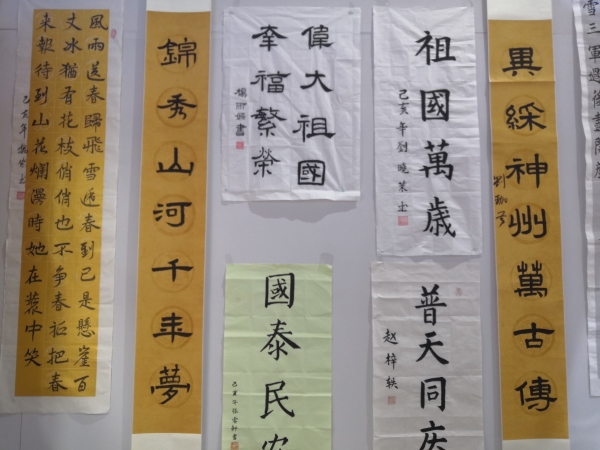 風雨送春歸飛雪迎春到已是懸崖百
丈冰猶有花枝俏俏也不争春祗把春
來報待到山花爛漫時她在叢中笑
己亥年
錦秀山河千年夢
偉大祖國
幸福繁榮
書
祖國萬歲
己亥年劉曉
國泰民安
己亥年張雪 書
普天同庆
赵梓轶
異綵神州萬古傳
劉
雪三軍過後盡開顔